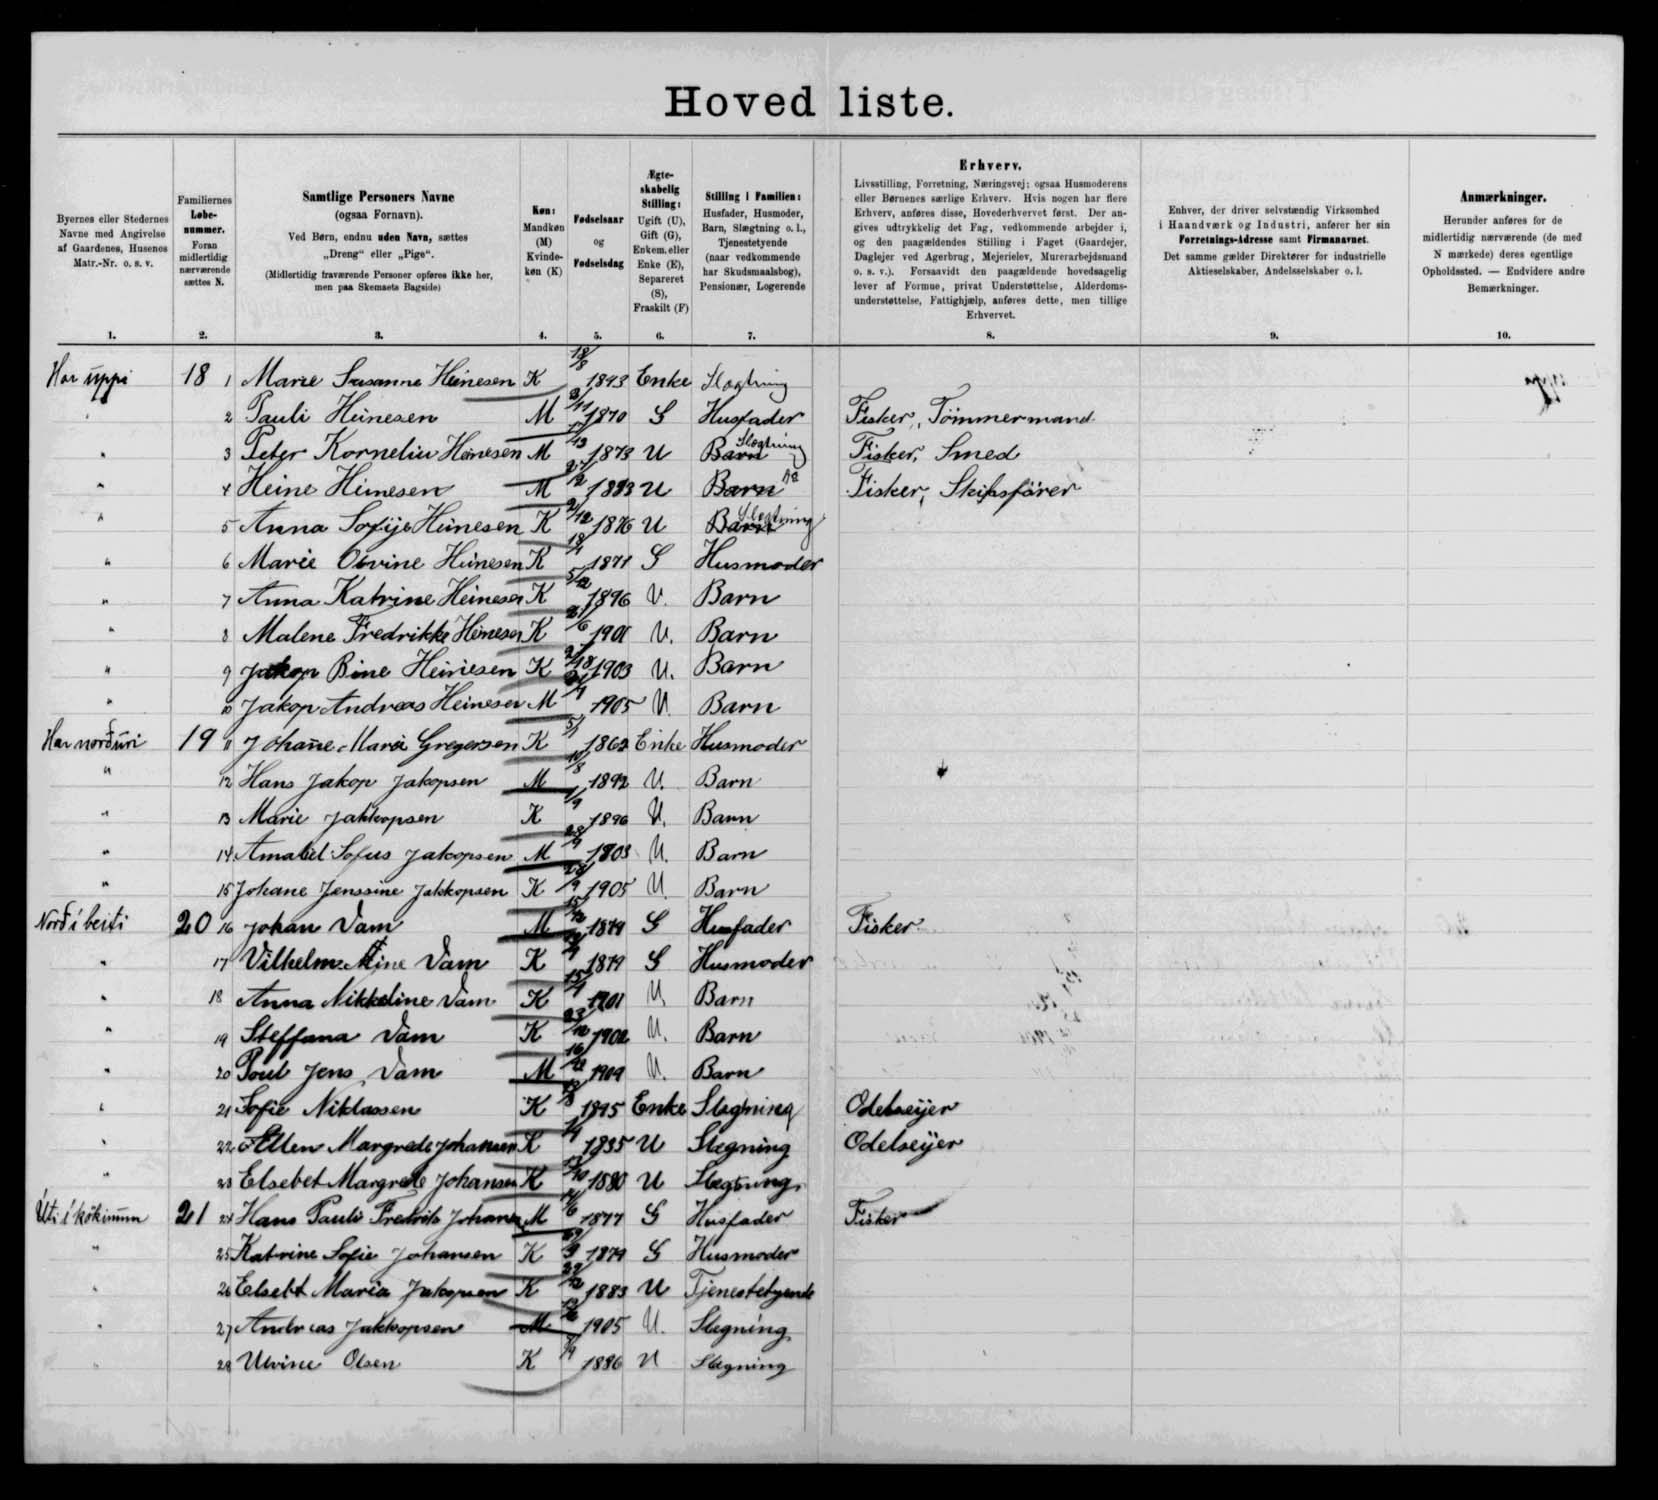 Hovedliste.
Byernes eller Stedernes Navne med Angivelse af Gaardenes, Husenes Matr.-Nr. o. s. v.
Familiernes Løbe-nummer. Foran midlertidig nærværende sættes N.
Samtlige Personers Navne
(ogsaa Fornavn).
Ved Børn, endnu uden Navn, sættes
„Dreng“ eller „Pige“.
(Midlertidig fraværende Personer opføres ikke her,
men paa Skemaets Bagside)
Køn: Mandkøn (M) Kvinde-køn (K)
Fødselsaar og Fødselsdag
Ægte-skabelig Stilling: Ugift (U), Gift (G), Enkem. eller Enke (E), Separeret (S), Fraskilt (F)
Stilling i Familien: Husfader, Husmoder, Barn, Slægtning o. l., Tjenestetyende (naar vedkommende har Skudsmaalsbog), Pensionær, Logerende
Erhverv.
Livsstilling, Forretning, Næringsvej; ogsaa Husmoderens
eller Børnenes særlige Erhverv. Hvis nogen har flere
Erhverv, anføres disse, Hovederhvervet først. Der an-
gives udtrykkelig det Fag, vedkommende arbejder i,
og den paagældendes Stilling i Faget (Gaardejer,
Daglejer ved Agerbrug, Mejerielev, Murerarbejdsmand
o. s. v.). Forsaavidt den paagældende hovedsagelig
lever af Formue, privat Understøttelse, Alderdoms-
understøttelse, Fattighjælp, anføres dette, men tillige
Erhvervet.
Enhver, der driver selvstændig Virksomhed
i Haandværk og Industri, anfører her sin
Forretnings-Adresse samt Firmanavnet.
Det samme gælder Direktører for industrielle
Aktieselskaber, Andelsselskaber o. l.
Anmærkninger.
Herunder anføres for de
midlertidig nærværende (de med
N mærkede) deres egentlige
Opholdssted. — Endvidere andre
Bemærkninger.
1. 2. 3. 4. 5. 6. 7. 8. 9. 10.
Har uppi 18 1 Marie Susanne Heinesen K 18/8 1843 Enke Slægtning
" 2 Pauli Heinesen M 1870 G Husfader Fisker, Tömmermand
" 3 Peter Kornelius Heinesen M 1873 U Barn Slægtning Fisker, Smed
" 4 Heine Heinesen M 1883 U Barn Fisker, Skibsförer
" 5 Anna Sofije Heinesen K 1876 U Barn Slægtning
" 6 Marie Heinesen K 1871 G Husmoder
" 7 Anna Katrine Heinesen K 5/12 1896 U. Barn
" 8 Malene Fredrikke Heinesen K 1901 U. Barn
" 9 Jakop Bine Heinesen K 1903 U. Barn
" 10 Jakop Andreas Heinesen M 1905 U Barn
Har norðuri 19 11 Johanne Maria Gregersen K 5/1 1862 Enke Husmoder
" 12 Hans Jakop Jakopsen M 11/8 1892 U. Barn
" 13 Marie Jakkopsen K 1/9 1896 U. Barn
" 14 Sofus Jakopsen M 1903 U. Barn
" 15 Johane Jenssine Jakkopsen K 1905 U Barn
Norð í beiti 20 16 Johan Dam M 1879 G Husfader Fisker
" 17 Vilhelm Mine Dam K 1879 G Husmoder
" 18 Anna Nikkoline Dam K 1901 U Barn
" 19 Steffana Dam K 23/12 1902 U. Barn
" 20 Poul Jens Dam M 1904 U. Barn
" 21 Sofie Niklassen K 1845 Enke Slegtning Odelseijer
" 22 Ellen Margrede Johansen K 1835 U Slegning Odelseijer
" 23 Elsebet Margrede Johansen K 1880 U Slegtning
Úti í kókinum 21 24 Hans Pauli Fredrik Johansen M 14/6 1877 G Husfader Fisker
" 25 Katrine Sofie Johansen K 1879 G Husmoder
" 26 Elsebt Maria Jakopsen K 1883 U Tjenestetyende
" 27 Andreas Jakkopsen M 1905 U. Slegning
" 28 Olsen K 1886 U Slegning